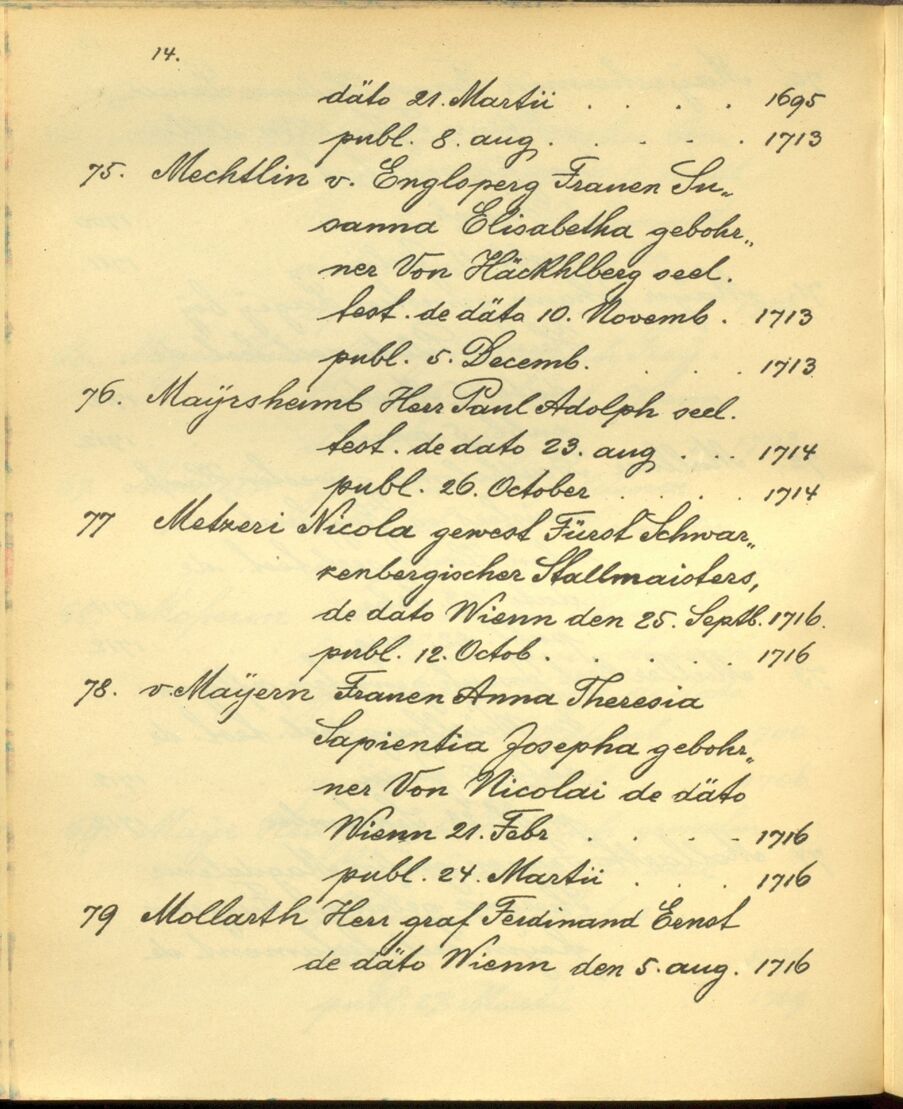 14.
däto 21. Martii . . . . 1695
publ. 8. aug. . . . . 1713
75. Mechtlin v. Engloperg Frauen Su„
sanna Elisabetha gebohr„
ner Von Häckhlberg seel.
test. de däto 10. Novemb. 1713
publ. 5. Decemb. . . . 1713
76. Maÿrsheimb Herr Paul Adolph seel.
test. de dato 23. aug . . . 1714
publ. 26. October . . . . 1714
77 Metzeri Nicola gewest Fürst Schwar„
zenbergischer Stallmaisters,
de dato Wienn den 25. Septb. 1716.
publ. 12. Octob . . . . . 1716
78. v. Maÿern Frauen Anna Theresia
Sapientia Josepha gebohr„
ner Von Nicolai de däto
Wienn 21. Febr . . . . . 1716
publ. 24. Martii . . . 1716
79 Mollarth Herr graf Ferdinand Ernst
de däto Wienn den 5. aug. 1716